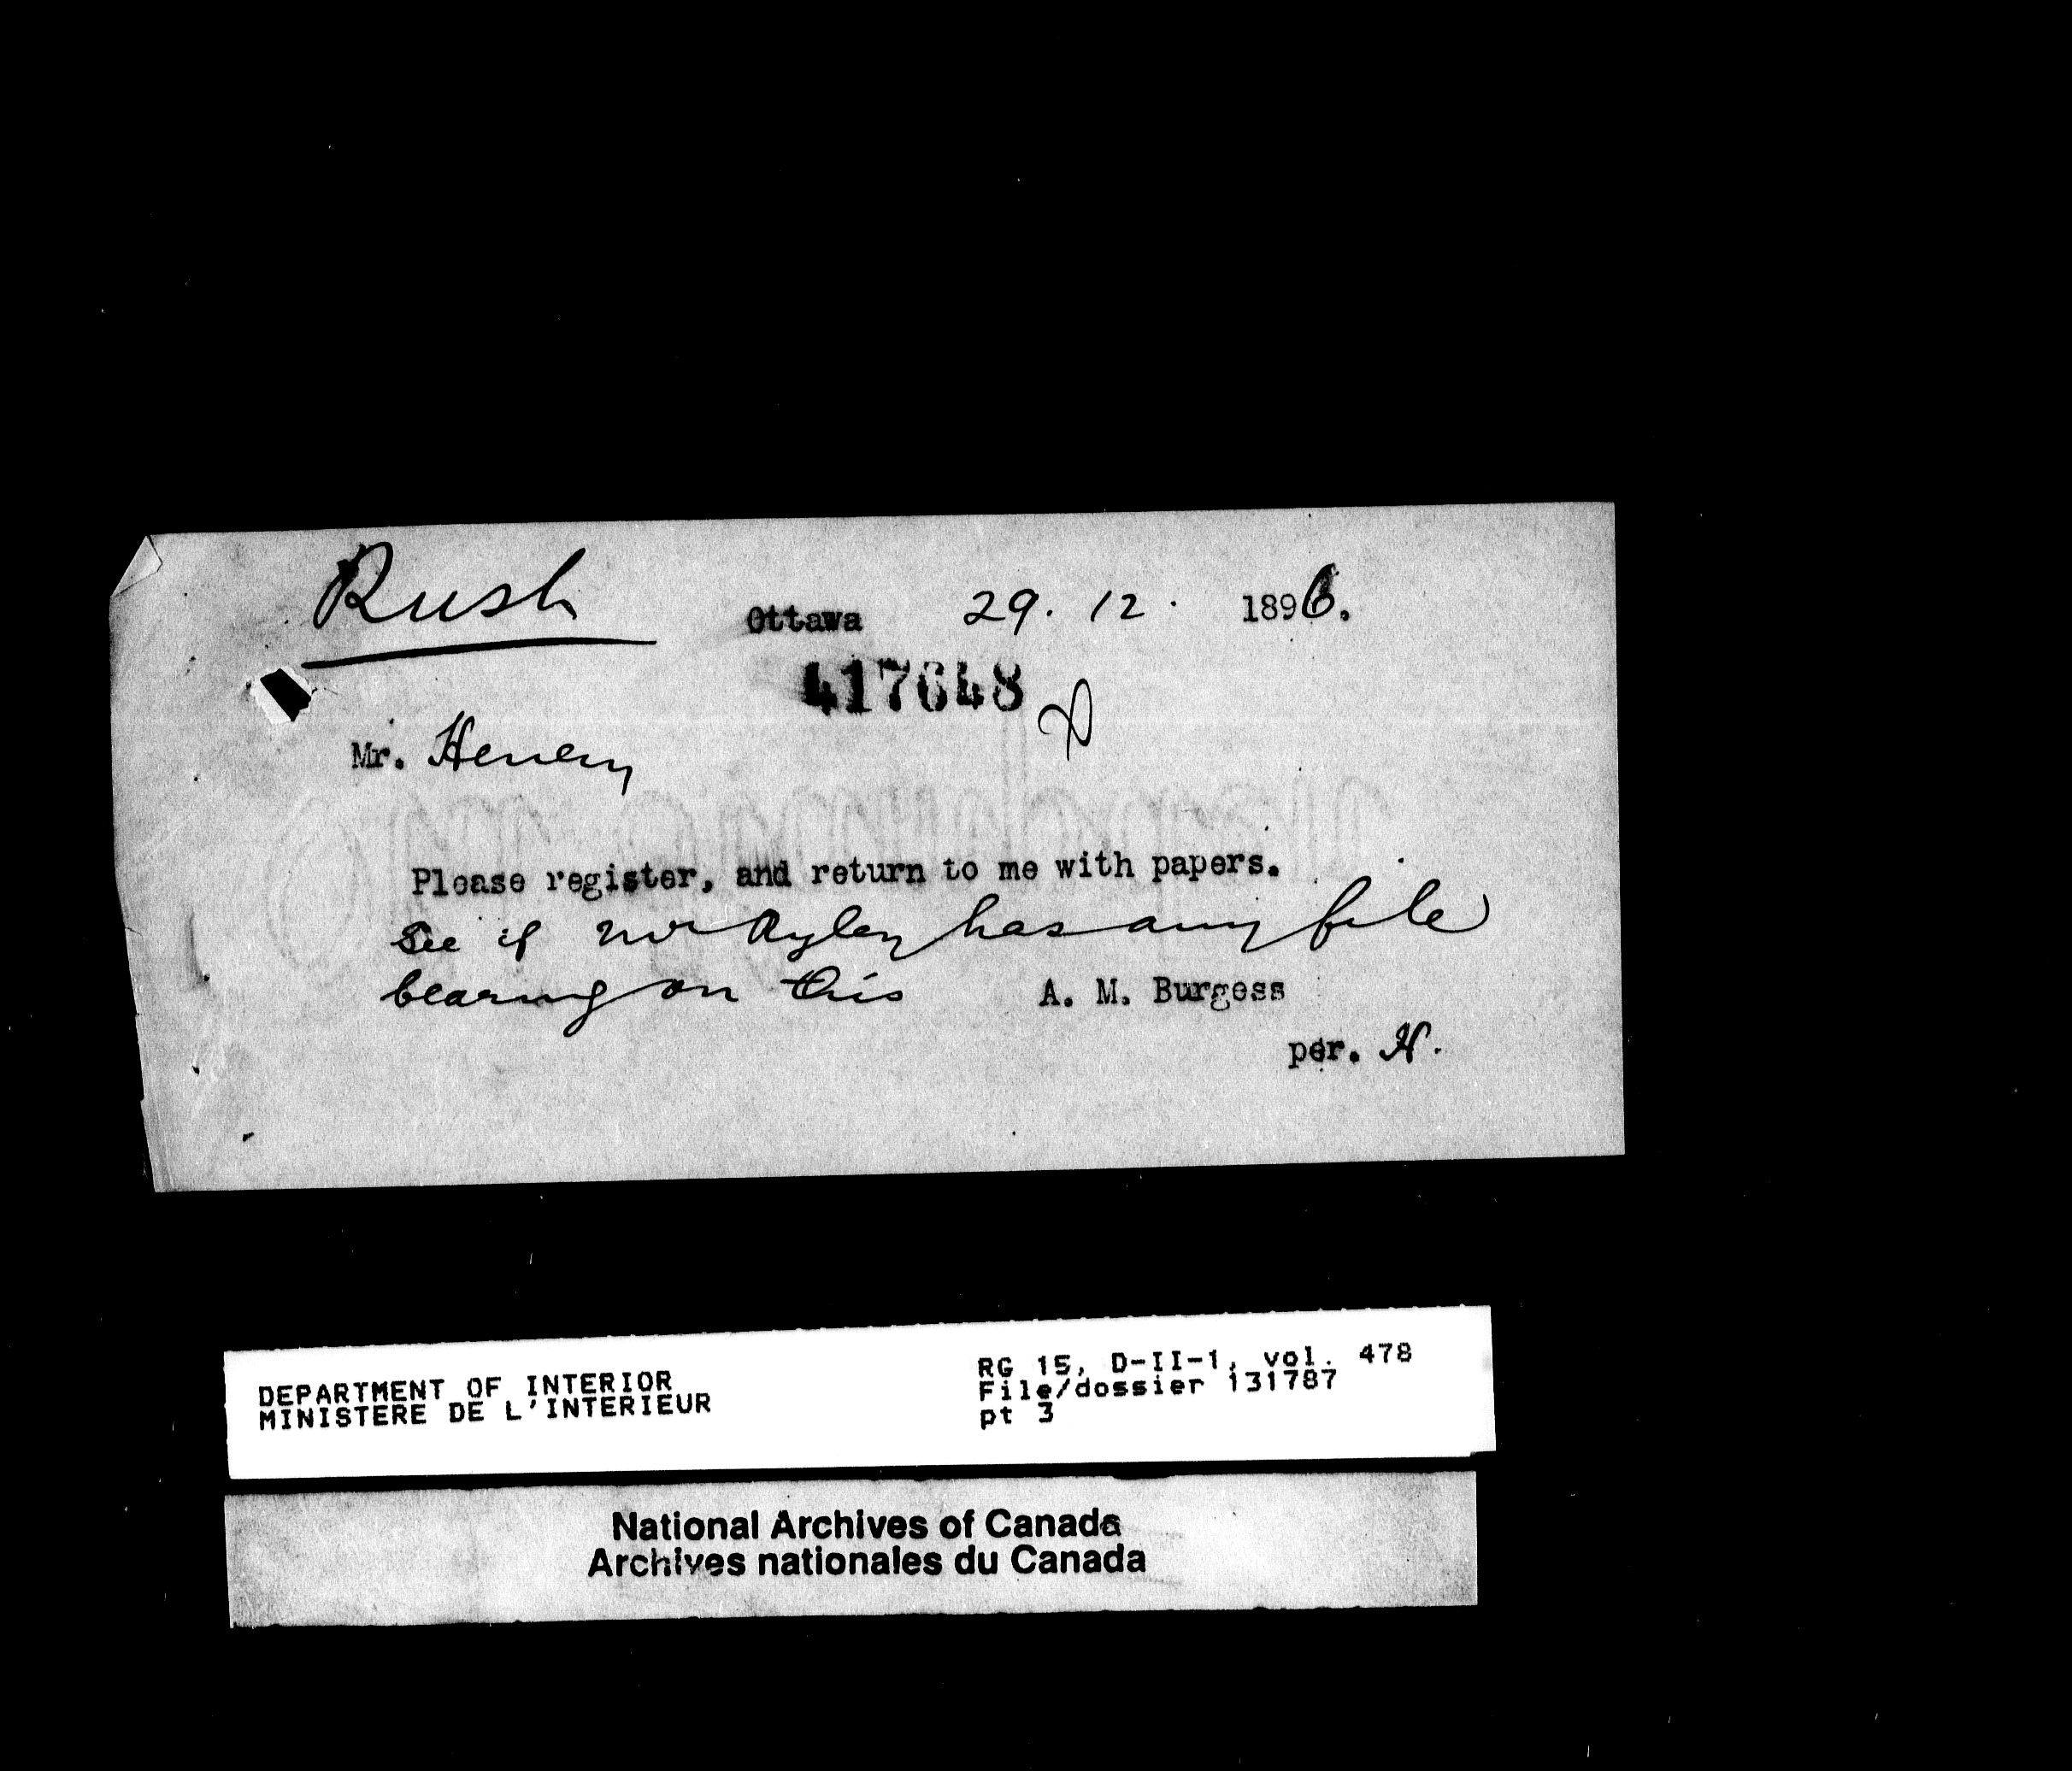 Rush
Ottawa 29. 12. 1896.
417648
Mr. Henery
Please register, and return to me with papers.
See if Mr Ryley has any file
bearing on this A. M. Burgess
per. H.
DEPARTMENT OF INTERIOR
MINISTERE DE L'INTERIEUR
RG 15, D-II-1, vol. 478
File/dossier 131787
pt 3
National Archives of Canada
Archives nationales du Canada